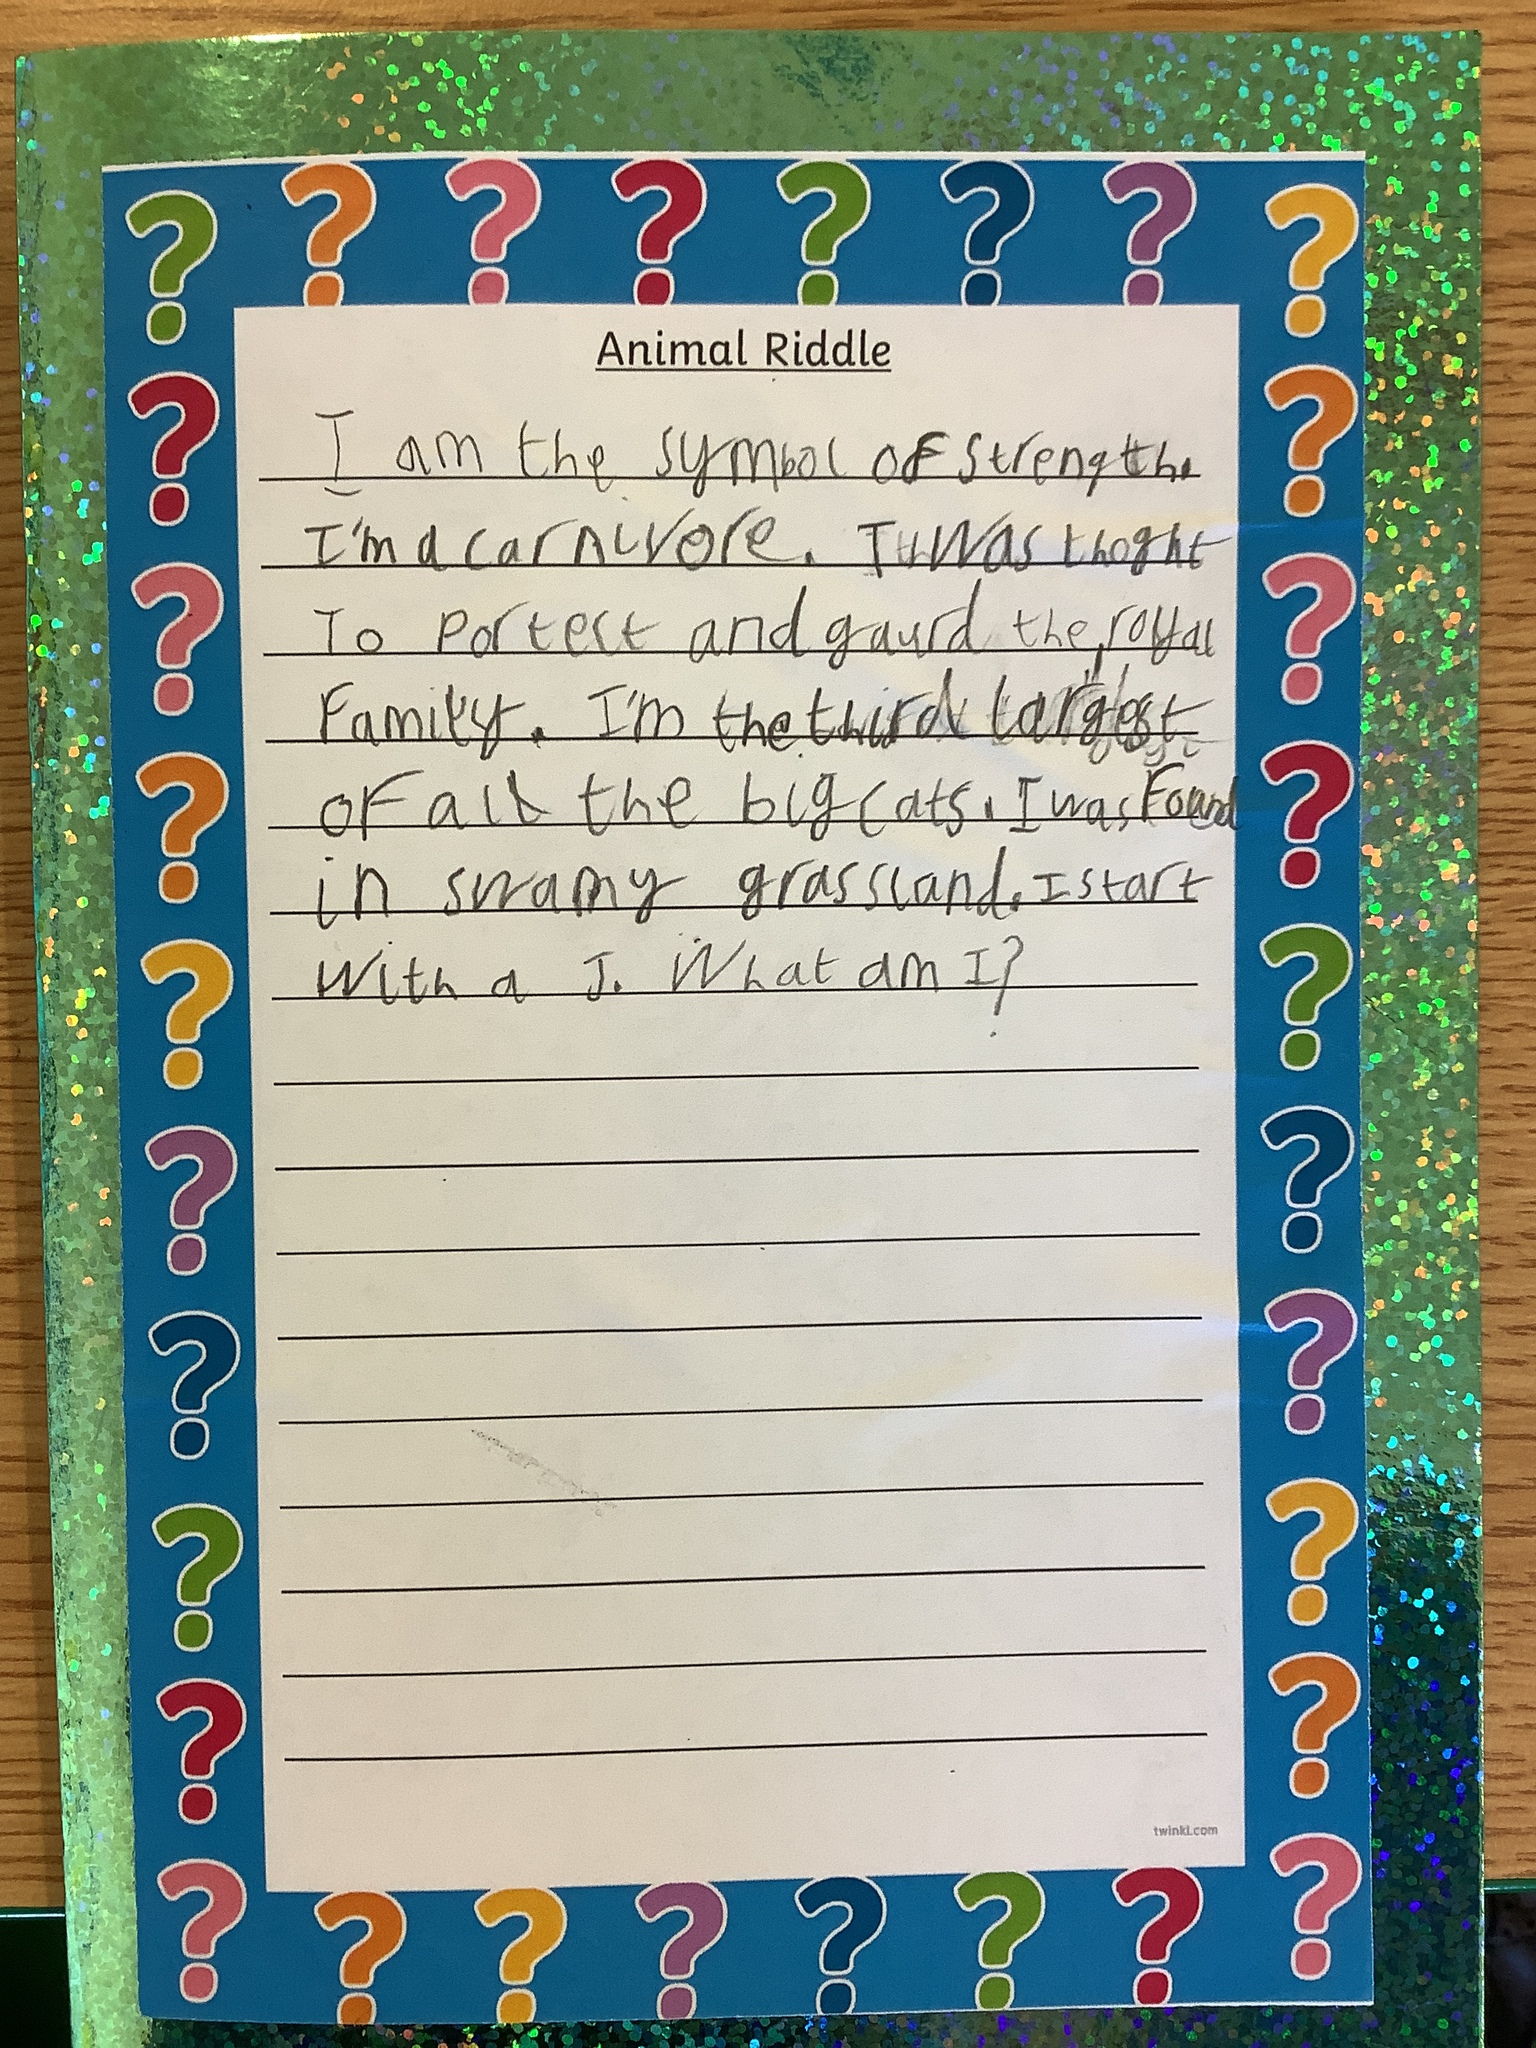 Animal Riddle
I am the symbol of strength.
I'm a carnivore. I was thoght
To Portect and gaurd the royal
Family. I'm the third largest
oF all the big cats. I was Found
in swamy grassland. I start
With a J. What am I?
twinkl.com